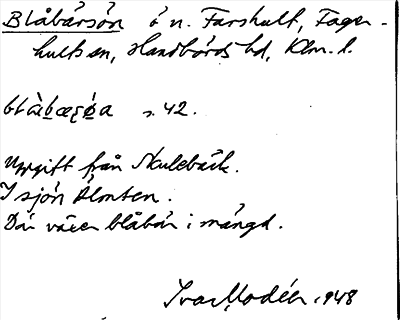 Blåbärsön ö n. Farshult, Fager-
hults sn, Handbörds hd, Klm. l.
s. 42.
Uppgift från Skulebäck.
I sjön Älmten.
Där växer blåbär i mängd.
Ivar Modéer 1948